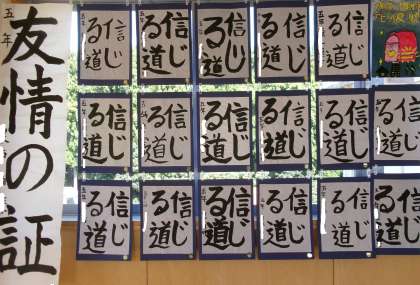 五年
友情の証
信じ
る道
信じ
る道
信じ
る道
信じ
る道
信じ
る道
信じ
る道
信じ
る道
信じ
る道
信じ
る道
信じ
る道
信じ
る道
信じ
る道
信じ
る道
信じ
る道
信じ
る道
信じ
る道
信じ
る道